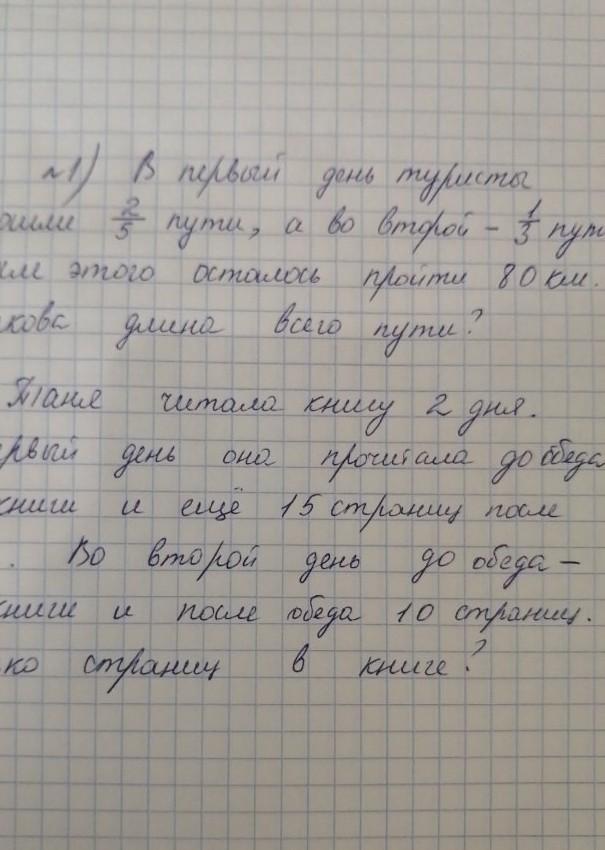 №1) В первый день туристы
ошли 2/5 пути, а во второй - 1/3 пут
этого осталось пройти 80 км.
кова длина всего пути?
Таня читала книгу 2 дня.
ервый день она прочитала до обеда
книги и ещё 15 страниц после
. Во второй день до обеда -
книги и после обеда 10 страниц.
ко страниц в книге?